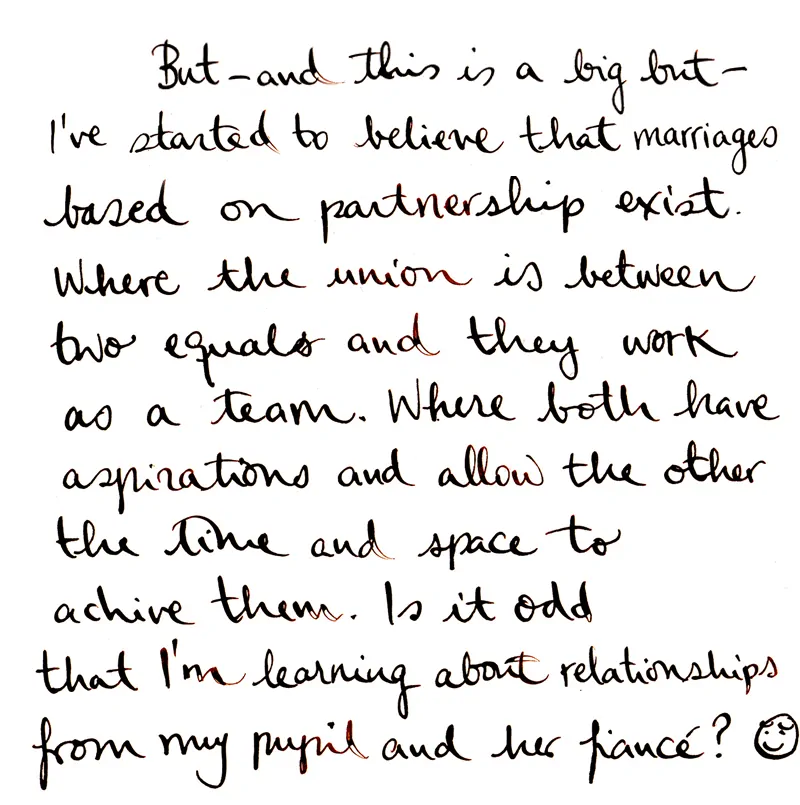 But – and this is a big but –
I've started to believe that marriages
based on partnership exist.
Where the union is between
two equals and they work
as a team. Where both have
aspirations and allow the other
the time and space to
achive them. Is it odd
that I'm learning about relationships
from my pupil and her fiancé? ☺